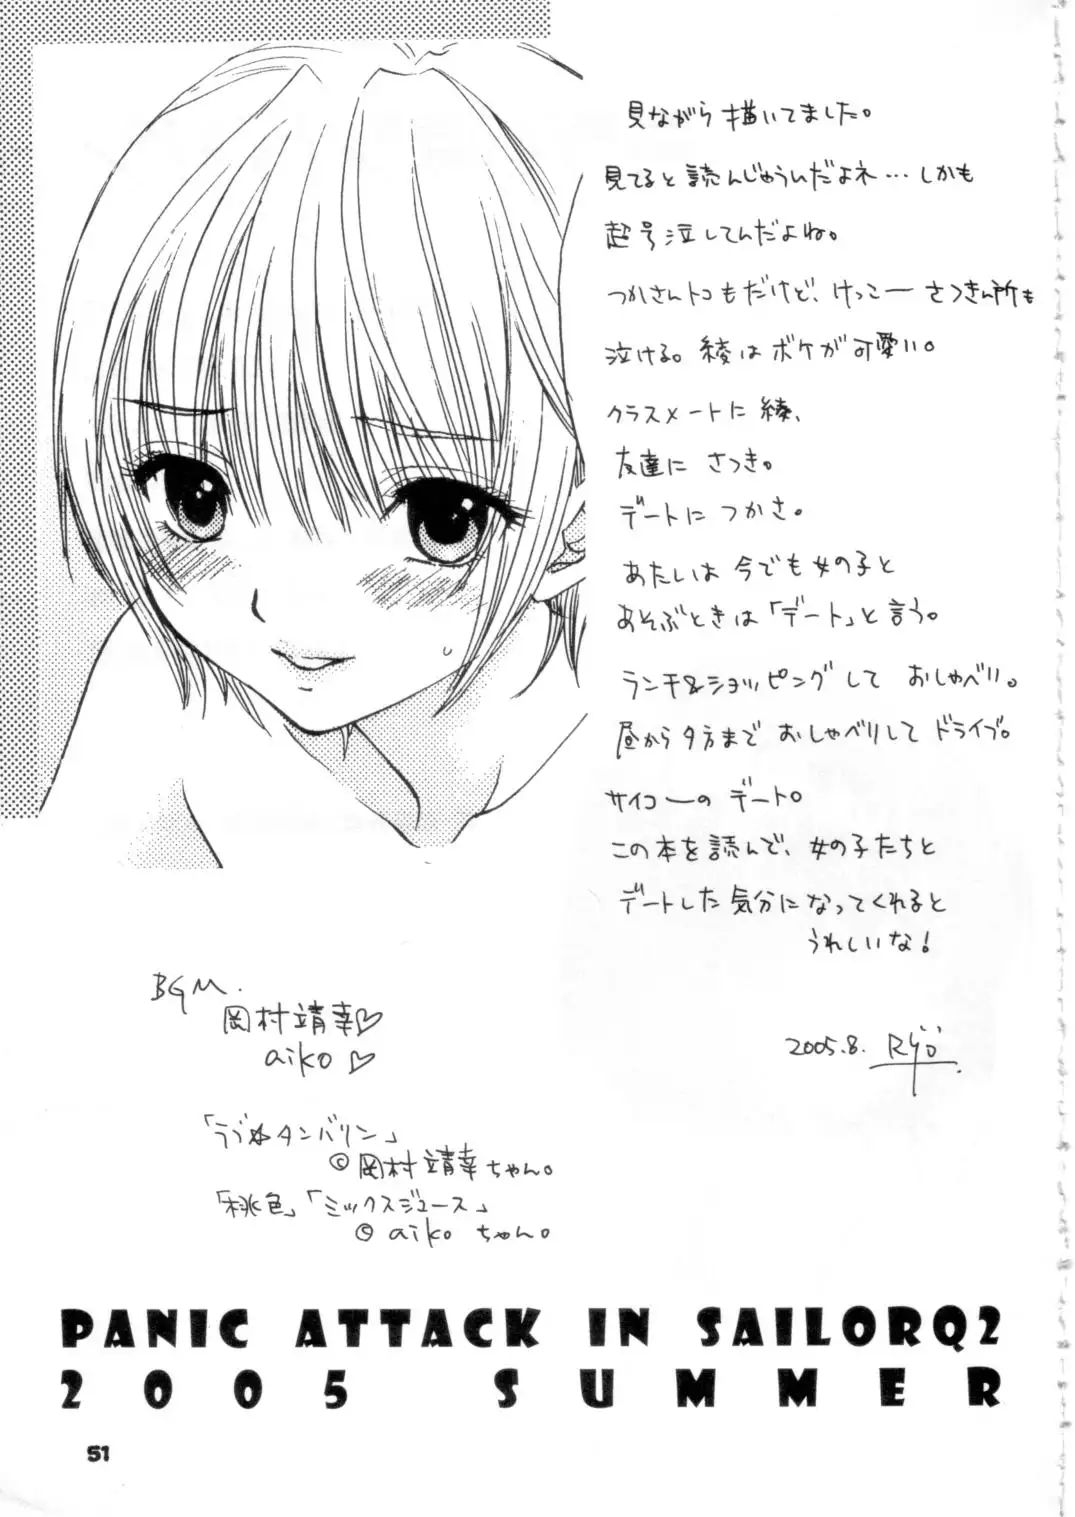 見ながら描いてました。
見てると読んじゅういだよネ…しかも
超号泣してんだよね。
つかさんトコもだけど、けっこー さつきん所も
泣ける。綾はボケが可愛い。
クラスメートに綾、
友達に さつき。
デートに つかさ。
あたいは 今でも女の子と
あそぶときは「デート」と言う。
ランチ&ショッピングして おしゃべり。
昼から夕方まで おしゃべりして ドライブ。
サイコーの デート。
この本を読んで、女の子たちと
デートした気分になってくれると
うれしいな!
2005.8. Ryö
BGM.
岡村靖幸♡
aiko♡
「ラブ☆タンバリン」
©岡村靖幸ちゃん。
「桃色」「ミックスジュース」
© aiko ちゃん。
PANIC ATTACK IN SAILORQ2
2005 SUMMER
51